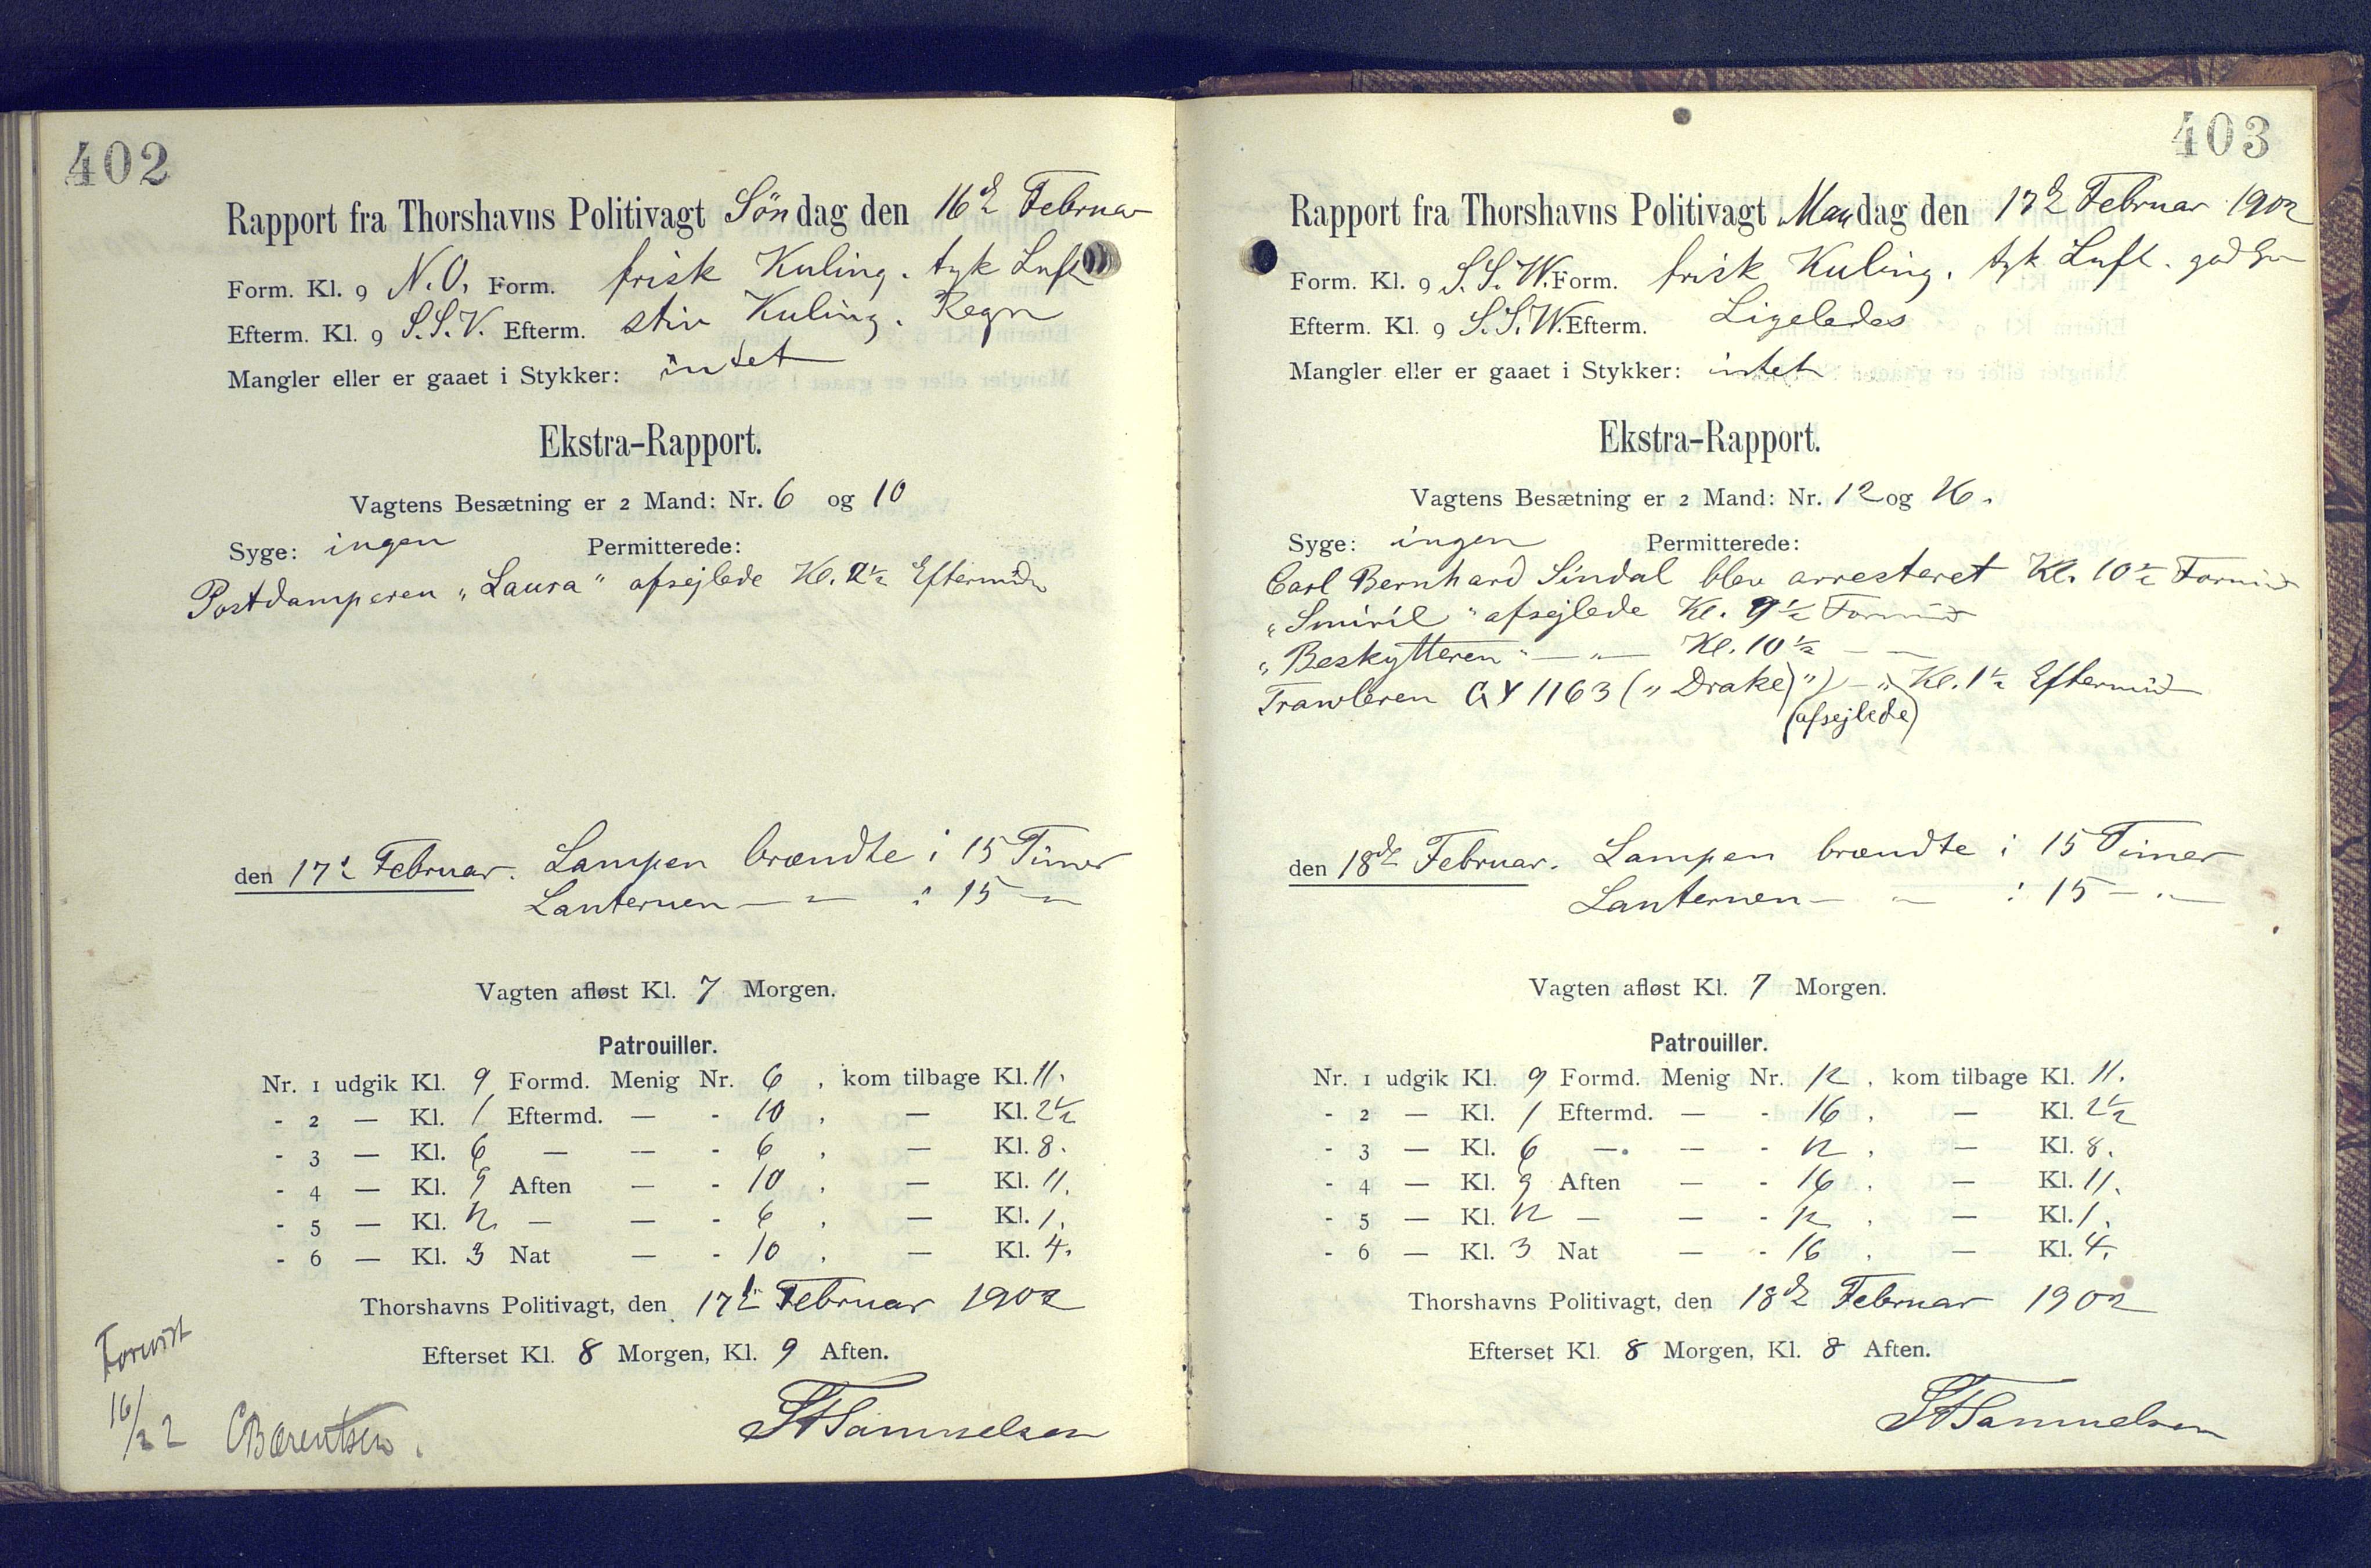 402
Rapport fra Thorshavns Politivagt Søndag den 16de Februar
Form. Kl. 9 N.O. Form. frisk Kuling. tyk Luft
Efterm. Kl. 9 S.S.V. Efterm. stiv Kuling. Regn
Mangler eller er gaaet i Stykker: intet
Ekstra-Rapport.
Vagtens Besætning er 2 Mand: Nr. 6 og 10
Syge: ingen Permitterede:
Postdamperen „Laura“ afsejlede Kl. 2½ Eftermid
den 17de Februar. Lampen brændte i 15 Timer
Lanternen — „ — i 15 — „
Vagten afløst Kl. 7 Morgen.
Patrouiller.
Nr. 1 udgik Kl. 9 Formd. Menig Nr. 6 , kom tilbage Kl. 11.
- 2 — Kl. 1 Eftermd. — - 10 , — Kl. 2½
- 3 — Kl. 6 — — - 6 , — Kl. 8.
- 4 — Kl. 9 Aften — - 10 , — Kl. 11.
- 5 — Kl. 12. — — - 6 , — Kl. 1.
- 6 — Kl. 3 Nat — - 10 , — Kl. 4.
Thorshavns Politivagt, den 17de Februar 1902
Efterset Kl. 8 Morgen, Kl. 9 Aften.
Forevist
16/2 2 CBærentsen.
Samuelsen
403
Rapport fra Thorshavns Politivagt Mandag den 17de Februar 1902
Form. Kl. 9 S.S.W. Form. frisk Kuling. tyk Luft.
Efterm. Kl. 9 S.S.W. Efterm. Ligeledes
Mangler eller er gaaet i Stykker: intet
Ekstra-Rapport.
Vagtens Besætning er 2 Mand: Nr. 12 og 16.
Syge: ingen Permitterede:
Carl Bernhard Sindal blev arresteret Kl. 10½ Formid
„Smiril“ afsejlede Kl. 9½ Formid
„Beskytteren“ — „ — Kl. 10½ — —
Trawleren GY 1163 („Drake)“) — „ Kl. 1½ Eftermid
(afsejlede)
den 18de Februar. Lampen brændte i 15 Timer
Lanternen — „ — i 15 — „ —
Vagten afløst Kl. 7 Morgen.
Patrouiller.
Nr. 1 udgik Kl. 9 Formd. Menig Nr. 12 , kom tilbage Kl. 11.
- 2 — Kl. 1 Eftermd. — - 16 , — Kl. 2½
- 3 — Kl. 6 — — - 12 , — Kl. 8.
- 4 — Kl. 9 Aften — - 16 , — Kl. 11.
- 5 — Kl. 12 — — - 12 , — Kl. 1.
- 6 — Kl. 3 Nat — - 16 , — Kl. 4.
Thorshavns Politivagt, den 18de Februar 1902
Efterset Kl. 8 Morgen, Kl. 8 Aften.
Samuelsen